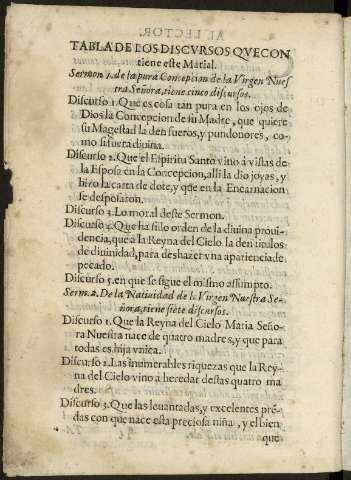 TABLA DE LOS DISCVRSOS QVE CON
tiene este Marial.
Sermon 1. de la pura Concepcion de la Virgen Nues
tra Señora, tiene cinco discursos.
Discurso 1. Que es cosa tan pura en los ojos de
Dios la Concepcion de su Madre, que quiere
su Magestad la den fueros, y pundonores, co-
mo si fuera diuina.
Discurso 2. Que el Espiritu Santo vino à vistas de
la Esposa en la Concepcion, alli la dio joyas, y
hizo la carta de dote, y que en la Encarnacion
se desposaron.
Discurso 3. Lo moral deste Sermon.
Discurso 4. Que ha sido orden de la diuina proui-
dencia, que à la Reyna del Cielo la den titulos
de diuinidad, para deshazer vna apariencia de
pecado.
Discurso 5. en que se sigue el mismo assumpto.
Serm. 2. De la Natiuidad de la Virgen Nuestra Se-
ñora, tiene siete discursos.
Discurso 1. Que la Reyna del Cielo Maria Seño-
ra Nuestra nace de quatro madres, y que para
todas es hija vnica.
Discurso 2. Las inumerables riquezas que la Rey-
na del Cielo vino à heredar destas quatro ma
dres.
Discurso 3. Que las leuantadas, y excelentes pre-
das con que nace esta preciosa niña, y el bien
que